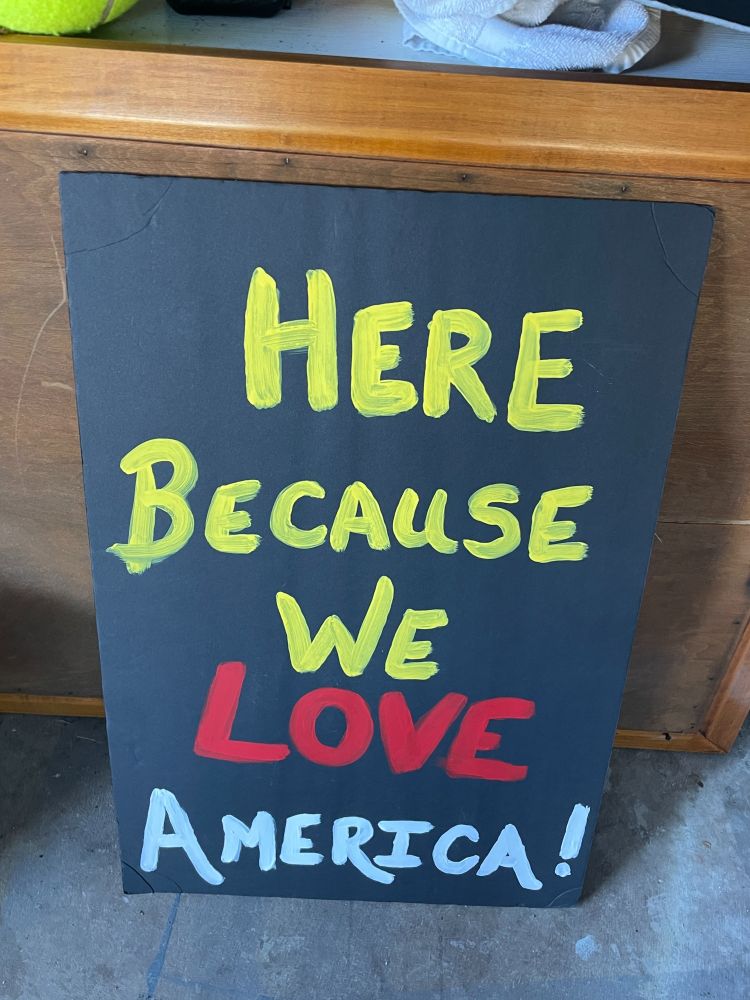 HERE
BECAUSE
WE
LOVE
AMERICA!